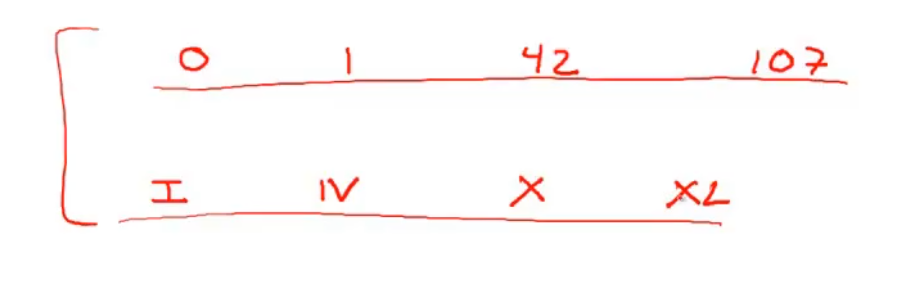 0 1 42 107
I IV X XL